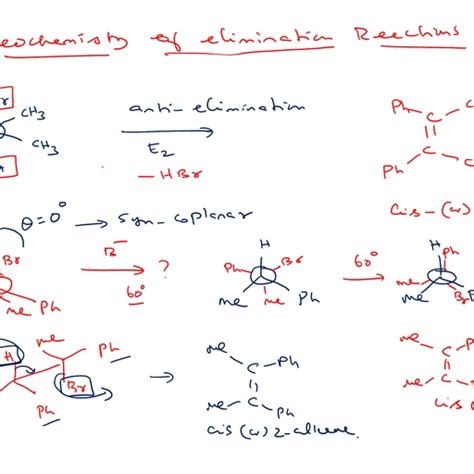 eochemistry of elimination Reactions
CH3
CH3
anti-elimination
E2
- HBr
Ph
C
C
Ph
C
C
cis-(or)
θ=0°
→ syn-coplanar
Br
me
Ph
B⁻
60°
?
H
Ph
Br
me
me
Ph
60°
H
Ph
me
me
H
me
Ph
Br
Ph
me
C
Ph
me
C
Ph
cis (or) Z-alkene.
me
C
Ph
C